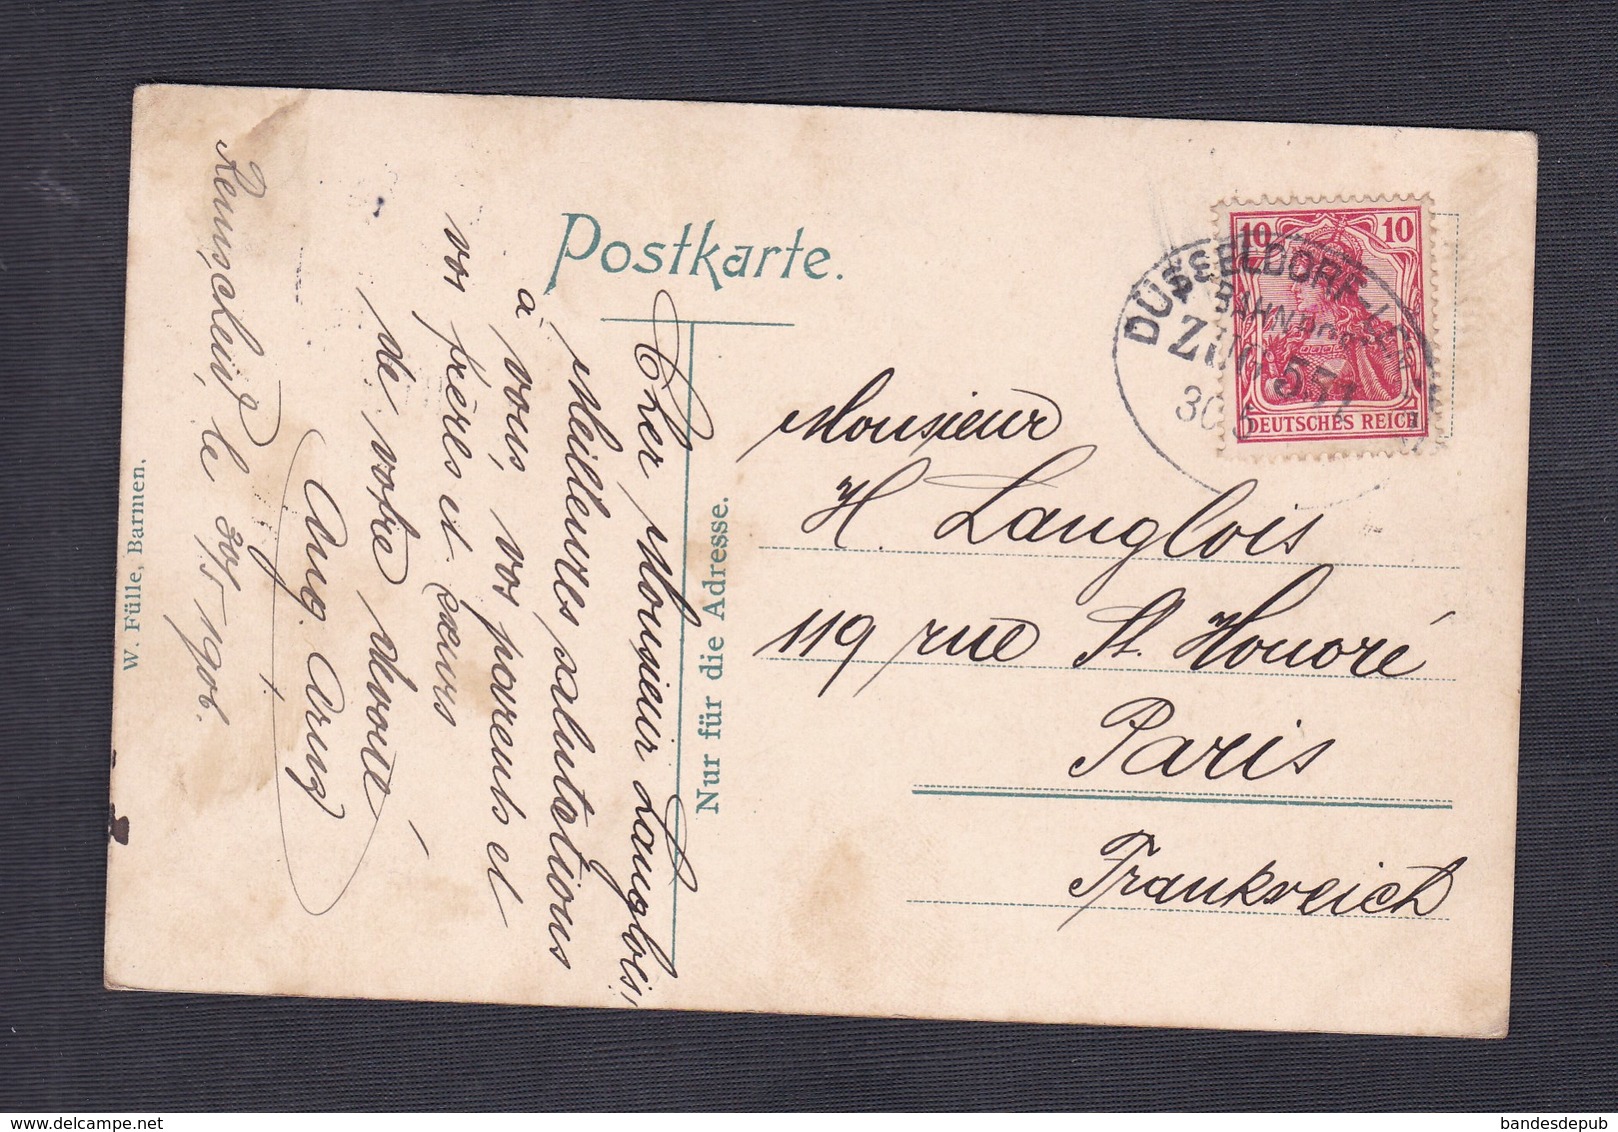 Postkarte.
Nur für die Adresse.
W. Fülle, Barmen.
10 10
DEUTSCHES REICH
DÜSSELDORF
BAHNPOST
Zug 531
30
Monsieur
H. Langlois
119 rue St. Honoré
Paris
Frankreich
Remscheid, le 30/5 1906.
Cher Monsieur Langlois,
Meilleures salutations
à vous, vos parents et
vos frères et sœurs
de votre dévoué
Aug. Arns
www.delcampe.net
bandesdepub